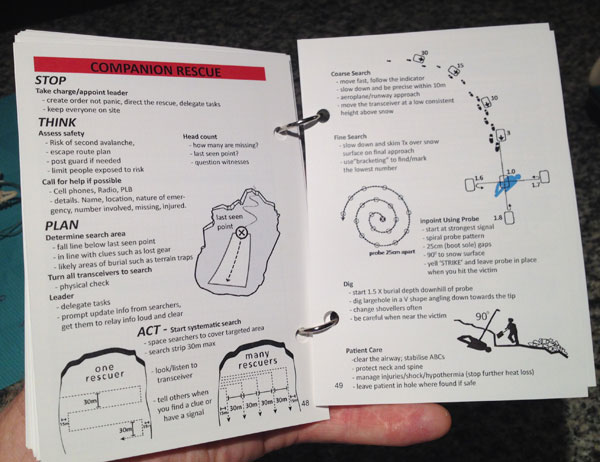 COMPANION RESCUE
STOP
Take charge/appoint leader
- create order not panic, direct the rescue, delegate tasks
- keep everyone on site
THINK
Assess safety
- Risk of second avalanche,
- escape route plan
- post guard if needed
- limit people exposed to risk
Head count
- how many are missing?
- last seen point?
- question witnesses
Call for help if possible
- Cell phones, Radio, PLB
- details. Name, location, nature of emer-
gency, number involved, missing, injured.
PLAN
Determine search area
- fall line below last seen point
- in line with clues such as lost gear
- likely areas of burial such as terrain traps
Turn all transceivers to search
- physical check
Leader
- delegate tasks
- prompt update info from searchers,
get them to relay info loud and clear
last seen
point
ACT - Start systematic search
- space searchers to cover targeted area
- search strip 30m max
- look/listen to
transceiver
- tell others when
you find a clue or
have a signal
one
rescuer
30m
15m
30m
many
rescuers
15m
30m
30m
30m
30m
15m
48
Coarse Search
- move fast, follow the indicator
- slow down and be precise within 10m
- aeroplane/runway approach
- move the transceiver at a low consistent
height above snow
30
Fine Search
- slow down and skim Tx over snow
surface on final approach
- use"bracketing" to find/mark
the lowest number
3
1.6
1.0
1.7
1.8
probe 25cm apart
inpoint Using Probe
- start at strongest signal
- spiral probe pattern
- 25cm (boot sole) gaps
- 90° to snow surface
- yell 'STRIKE' and leave probe in place
when you hit the victim
Dig
- start 1.5 X burial depth downhill of probe
- dig largehole in a V shape angling down towards the tip
- change shovellers often
- be careful when near the victim
90°
Patient Care
-clear the airway; stabilise ABCs
- protect neck and spine
- manage injuries/shock/hypothermia (stop further heat loss)
- leave patient in hole where found if safe
49